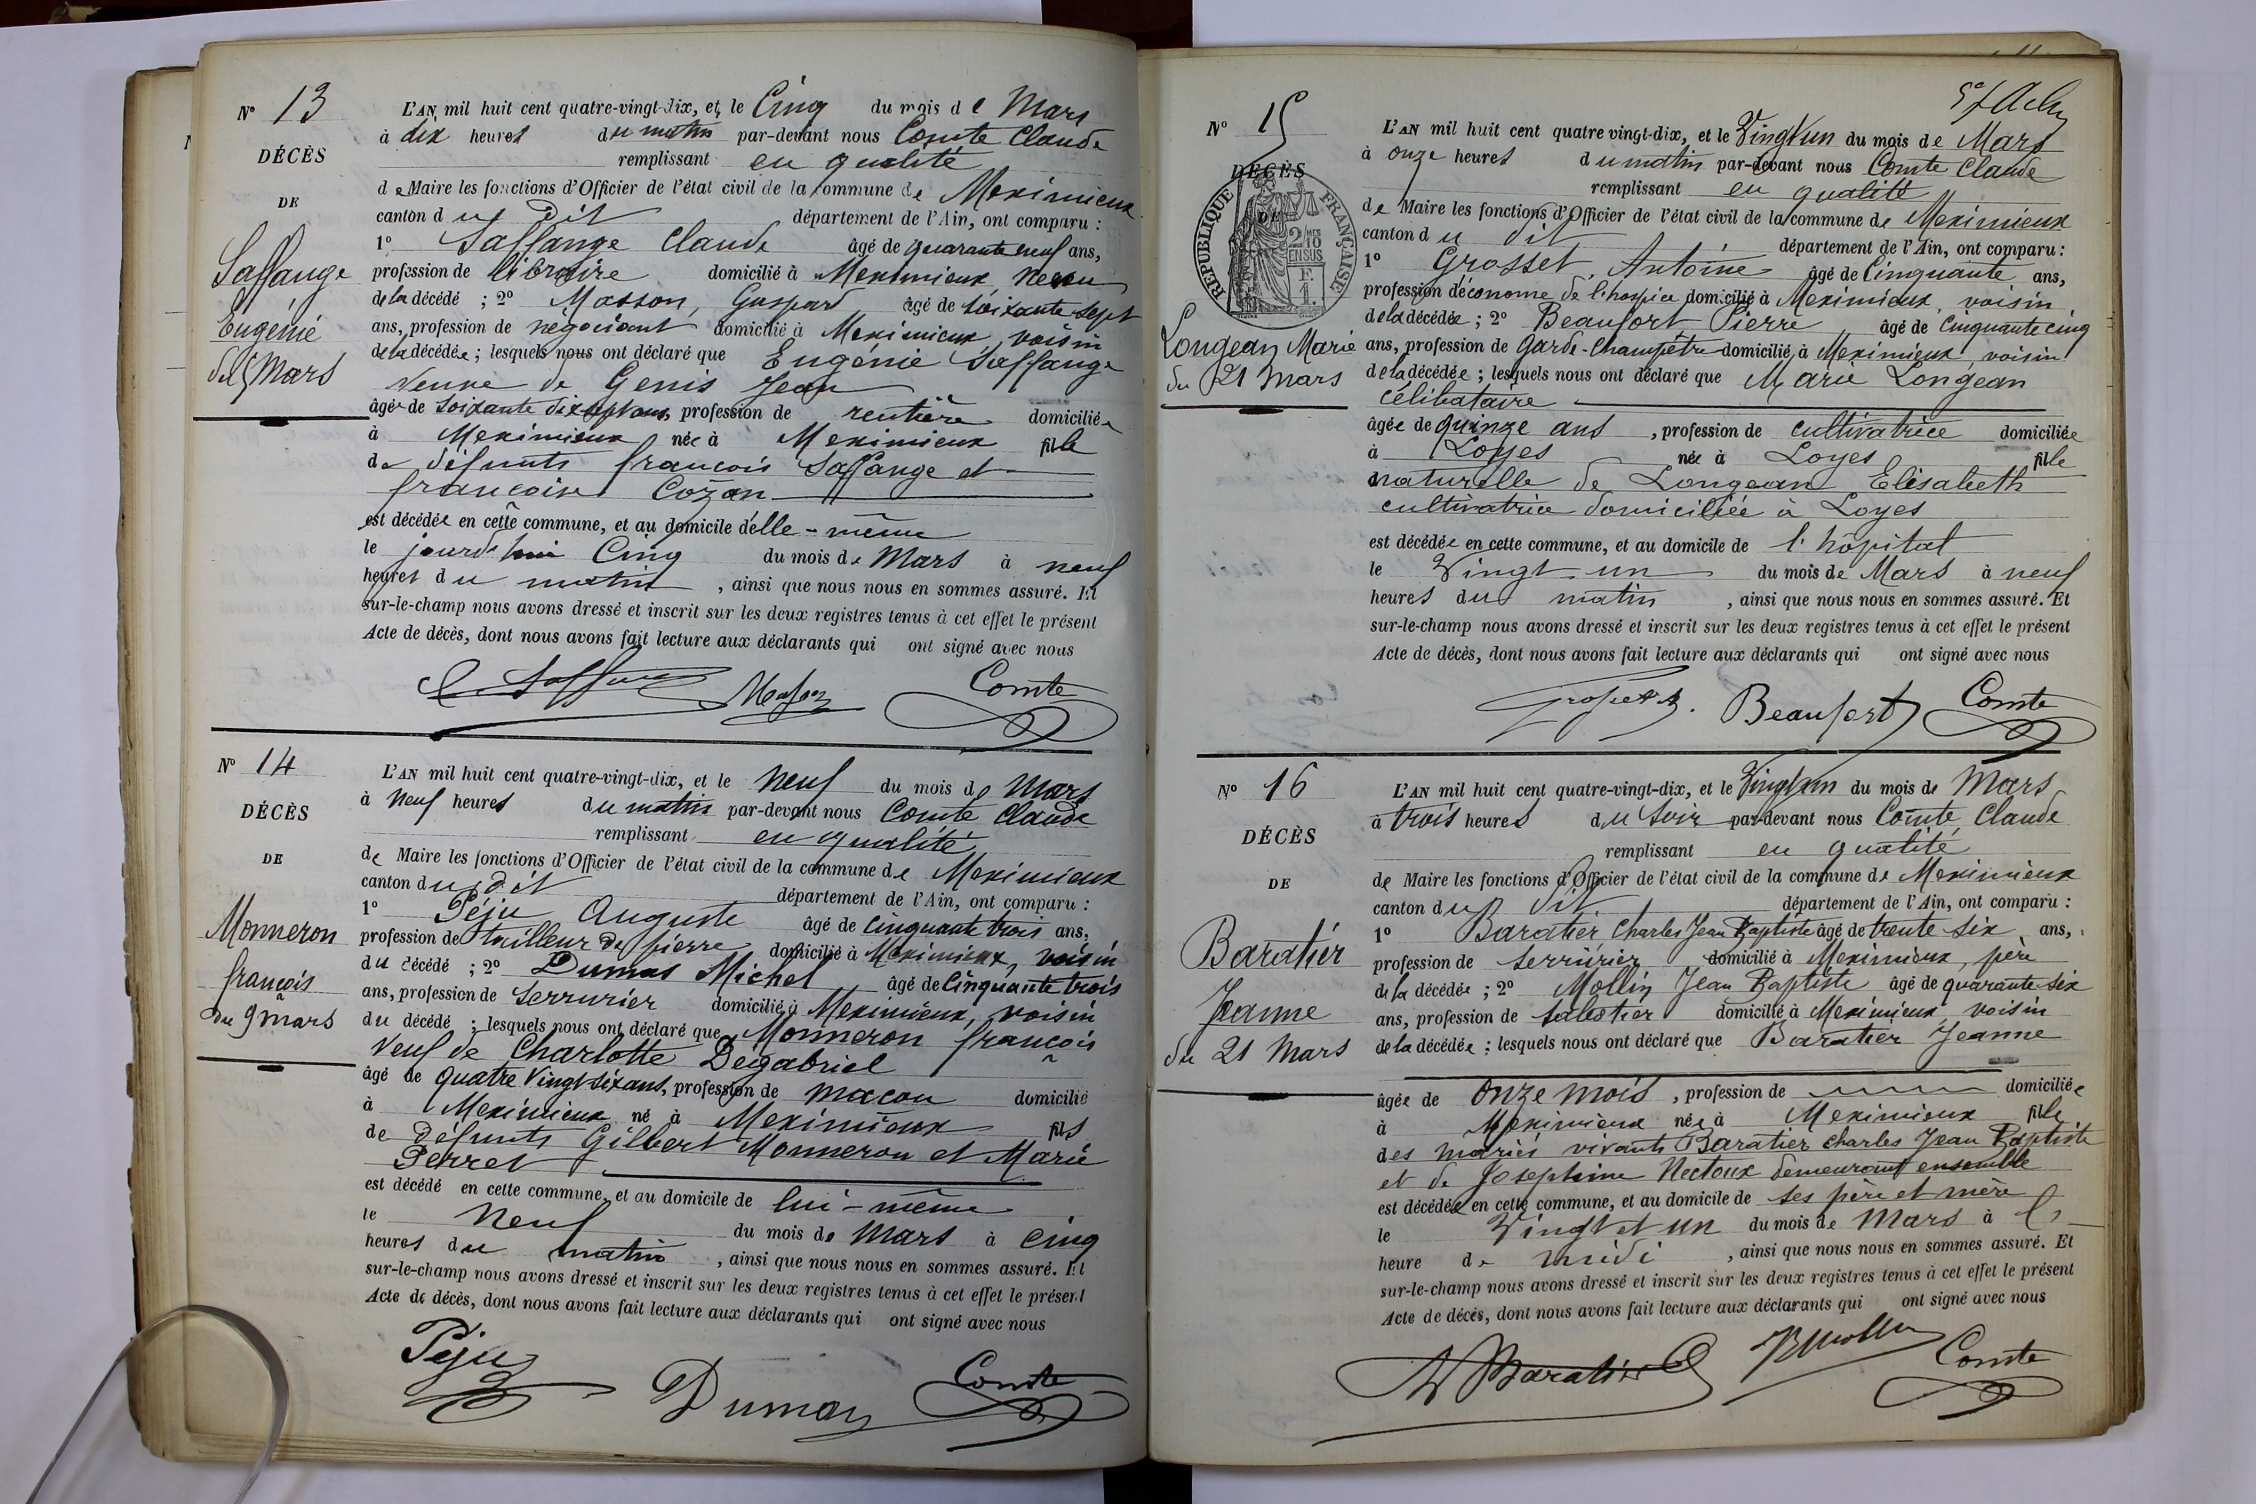 N° 13
DÉCÈS
DE
Saffange
Eugénie
du 5 Mars
L'AN mil huit cent quatre-vingt-dix, et le Cinq du mois de Mars
à dix heures du matin par-devant nous Comte Claude
remplissant en qualité
de Maire les fonctions d'Officier de l'état civil de la commune de Meximieux
canton du dit département de l'Ain, ont comparu :
1° Saffange Claude âgé de quarante neuf ans,
profession de libraire domicilié à Meximieux, neveu
de la décédé ; 2° Masson, Gaspard âgé de soixante sept
ans, profession de négociant domicilié à Meximieux voisin
de la décédée ; lesquels nous ont déclaré que Eugénie Saffange
veuve de Genis Jean
âgée de soixante dix sept ans, profession de rentière domiciliée
à Meximieux née à Meximieux fille
de défunts françois Saffange et
françoise Cozon
est décédée en cette commune, et au domicile d'elle-même
le jourd'hui Cinq du mois de Mars à neuf
heures du matin, ainsi que nous nous en sommes assuré. Et
sur-le-champ nous avons dressé et inscrit sur les deux registres tenus à cet effet le présent
Acte de décès, dont nous avons fait lecture aux déclarants qui ont signé avec nous
C. Saffange Masson Comte
N° 14
DÉCÈS
DE
Monneron
françois
du 9 mars
L'AN mil huit cent quatre-vingt-dix, et le Neuf du mois de Mars
à Neuf heures du matin par-devant nous Comte Claude
remplissant en qualité
de Maire les fonctions d'Officier de l'état civil de la commune de Meximieux
canton du dit département de l'Ain, ont comparu :
1° Péju Auguste âgé de Cinquante trois ans,
profession de tailleur de pierre domicilié à Meximieux, voisin
du décédé ; 2° Dumas Michel âgé de Cinquante trois
ans, profession de Serrurier domicilié à Meximieux, voisin
du décédé ; lesquels nous ont déclaré que Monneron françois
veuf de Charlotte Dégabriel
âgé de quatre vingt six ans, profession de maçon domicilié
à Meximieux né à Meximieux fils
de défunts Gilbert Monneron et Marie
Perret
est décédé en cette commune, et au domicile de lui-même
le Neuf du mois de Mars à Cinq
heures du matin, ainsi que nous nous en sommes assuré. Et
sur-le-champ nous avons dressé et inscrit sur les deux registres tenus à cet effet le présent
Acte de décès, dont nous avons fait lecture aux déclarants qui ont signé avec nous
Péju Dumas Comte
N° 15
DÉCÈS
DE
RÉPUBLIQUE FRANÇAISE
2/10 MES
EN SUS
Longean Marie
du 21 Mars
L'AN mil huit cent quatre vingt-dix, et le Vingt un du mois de Mars
à onze heures du matin par-devant nous Comte Claude
remplissant en qualité
de Maire les fonctions d'Officier de l'état civil de la commune de Meximieux
canton du dit département de l'Ain, ont comparu :
1° Grosset, Antoine âgé de Cinquante ans,
profession d'économe de l'hospice domicilié à Meximieux, voisin
de la décédée ; 2° Beaufort Pierre âgé de Cinquante cinq
ans, profession de Garde-Champêtre domicilié à Meximieux voisin
de la décédée ; lesquels nous ont déclaré que Marie Longean
Célibataire
âgée de quinze ans, profession de cultivatrice domiciliée
à Loyes née à Loyes fille
naturelle de Longean Elisabeth
cultivatrice domiciliée à Loyes
est décédée en cette commune, et au domicile de l'hôpital
le Vingt un du mois de Mars à neuf
heures du matin, ainsi que nous nous en sommes assuré. Et
sur-le-champ nous avons dressé et inscrit sur les deux registres tenus à cet effet le présent
Acte de décès, dont nous avons fait lecture aux déclarants qui ont signé avec nous
Grosset A. Beaufort Comte
N° 16
DÉCÈS
DE
Baratier
Jeanne
du 21 Mars
L'AN mil huit cent quatre-vingt-dix, et le Vingt un du mois de Mars
à trois heures du soir par-devant nous Comte Claude
remplissant en qualité
de Maire les fonctions d'Officier de l'état civil de la commune de Meximieux
canton du dit département de l'Ain, ont comparu :
1° Baratier Charles Jean Baptiste âgé de trente six ans,
profession de serrurier domicilié à Meximieux, père
de la décédée ; 2° Mollin Jean Baptiste âgé de quarante-six
ans, profession de sabotier domicilié à Meximieux voisin
de la décédée ; lesquels nous ont déclaré que Baratier Jeanne
âgée de onze mois, profession de domiciliée
à Meximieux née à Meximieux fille
des mariés vivants Baratier Charles Jean Baptiste
et de Josephine Nectoux demeurant ensemble
est décédée en cette commune, et au domicile de ses père et mère
le Vingt et un du mois de Mars à l'
heure de midi, ainsi que nous nous en sommes assuré. Et
sur-le-champ nous avons dressé et inscrit sur les deux registres tenus à cet effet le présent
Acte de décès, dont nous avons fait lecture aux déclarants qui ont signé avec nous
Baratier Mollin Comte